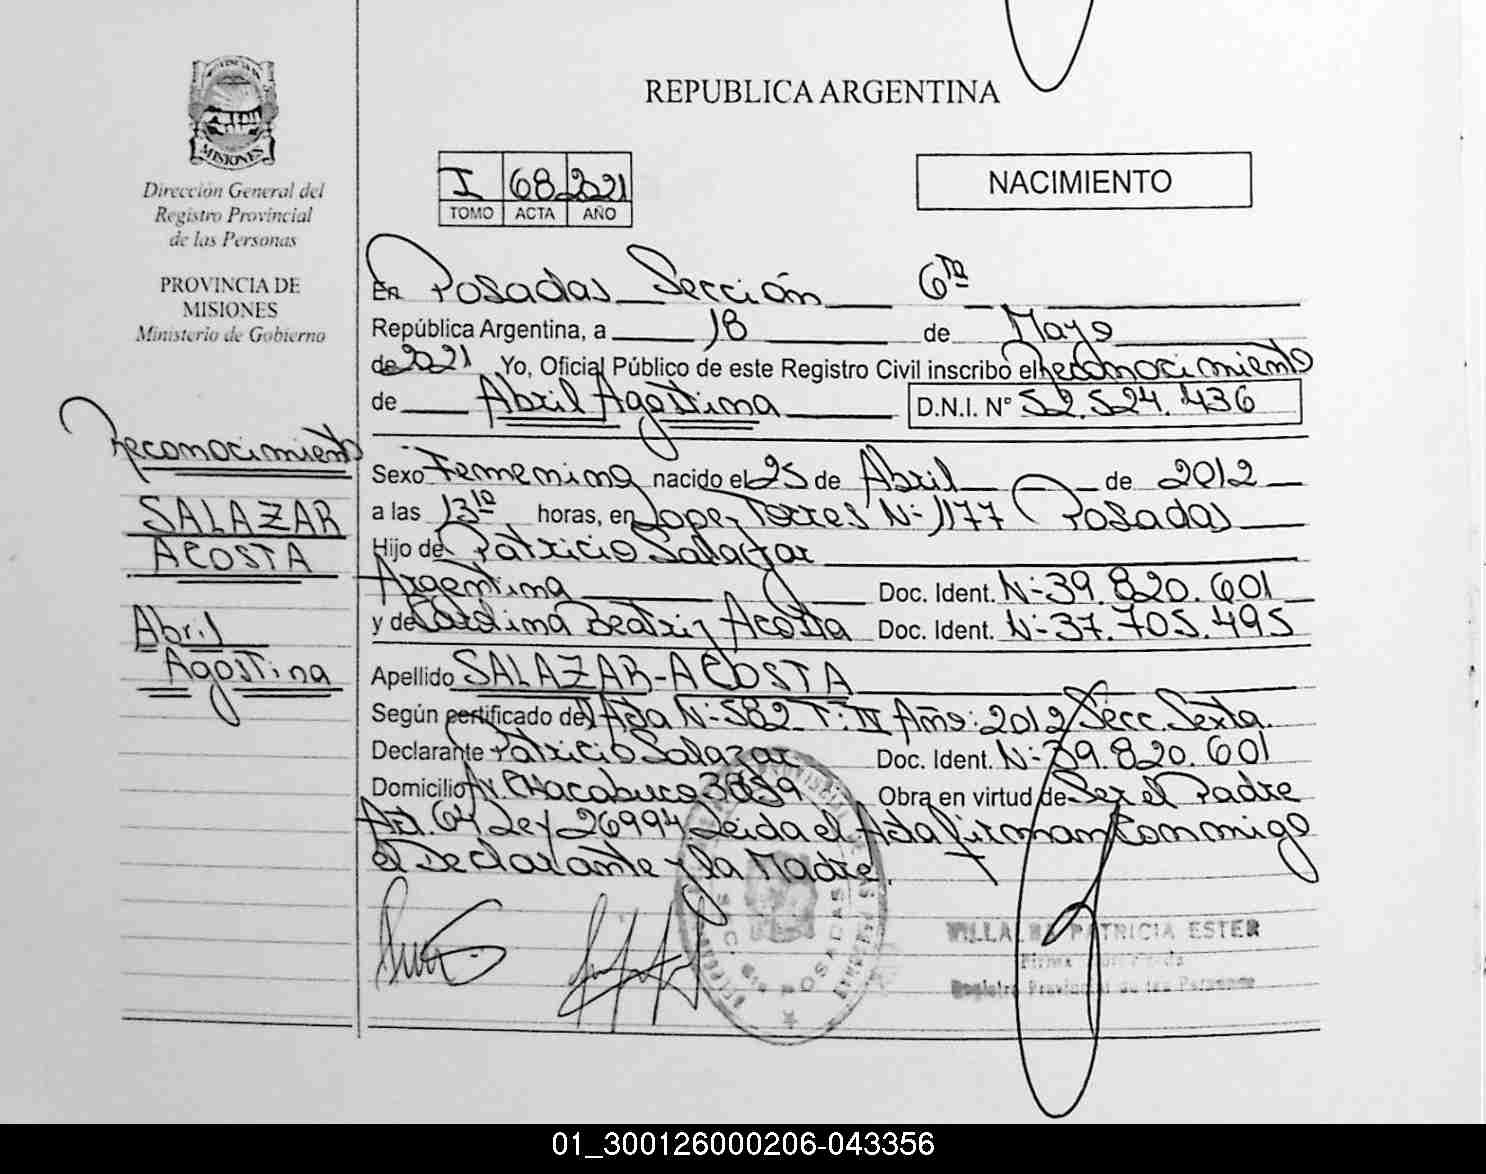 PROVINCIA DE
MISIONES
Dirección General del
Registro Provincial
de las Personas
PROVINCIA DE
MISIONES
Ministerio de Gobierno
Reconocimiento
SALAZAR
ACOSTA
Abril
Agostina
REPUBLICA ARGENTINA
I 68 2021
TOMO ACTA AÑO
NACIMIENTO
En Posadas Sección 6ta
República Argentina, a 18 de Mayo
de 2021 Yo, Oficial Público de este Registro Civil inscribo el Reconocimiento
de Abril Agostina D.N.I. N° 52.524.436
Sexo Femenino nacido el 25 de Abril de 2012
a las 13 horas, en Lopez Torres N° 1177 Posadas
Hijo de Patricio Salazar
Argentina Doc. Ident. N° 39.820.601
y de Carolina Beatriz Acosta Doc. Ident. N° 37.705.495
Apellido SALAZAR-ACOSTA
Según certificado del Acta N° 582 T: IV Año: 2012 Secc. Sexta.
Declarante Patricio Salazar Doc. Ident. N° 39.820.601
Domicilio Av. Chacabuco 3859 Obra en virtud de Ser el Padre
Art. 64 Ley 26994. Leida el Acta firman conmigo
el Declarante y la Madre.
POSADAS
PATRICIA ESTER
Registro Provincial de las Personas
01_300126000206-043356